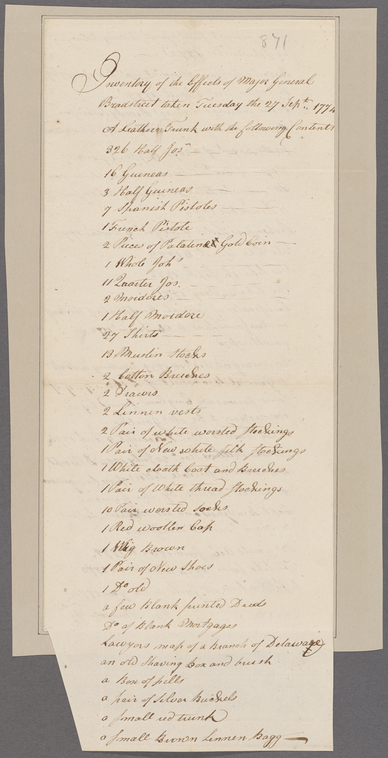 871
Inventory of the Effects of Major General
Bradstreet taken Tuesday the 27 Septr. 1774
A Leather Trunk with the following Contents
326 Half Jos.
16 Guineas
3 Half Guineas
7 Spanish Pistoles
1 French Pistole
2 Pieces of Gold Coin
1 Whole Joh
11 Quarter Jos.
2 Moidores
1 Half Moidore
27 Shirts
13 Muslin Stocks
2 Cotton Breeches
2 Drawers
2 Linnen vests
2 Pair of white worsted stockings
1 Pair of New white silk stockings
1 White cloath Coat and Breeches
1 Pair of White thread stockings
10 Pair worsted socks
1 Red woollen Cap
1 Wig Brown
1 Pair of New Shoes
1 Do. old
a few Blank printed Deeds
Do. of Blank Mortgages
Lawyers map of a branch of Delaware
an old shaving box and brush
a Box of pills
a pair of Silver Buckels
a small red trunk
a small Brown Linnen Bagg